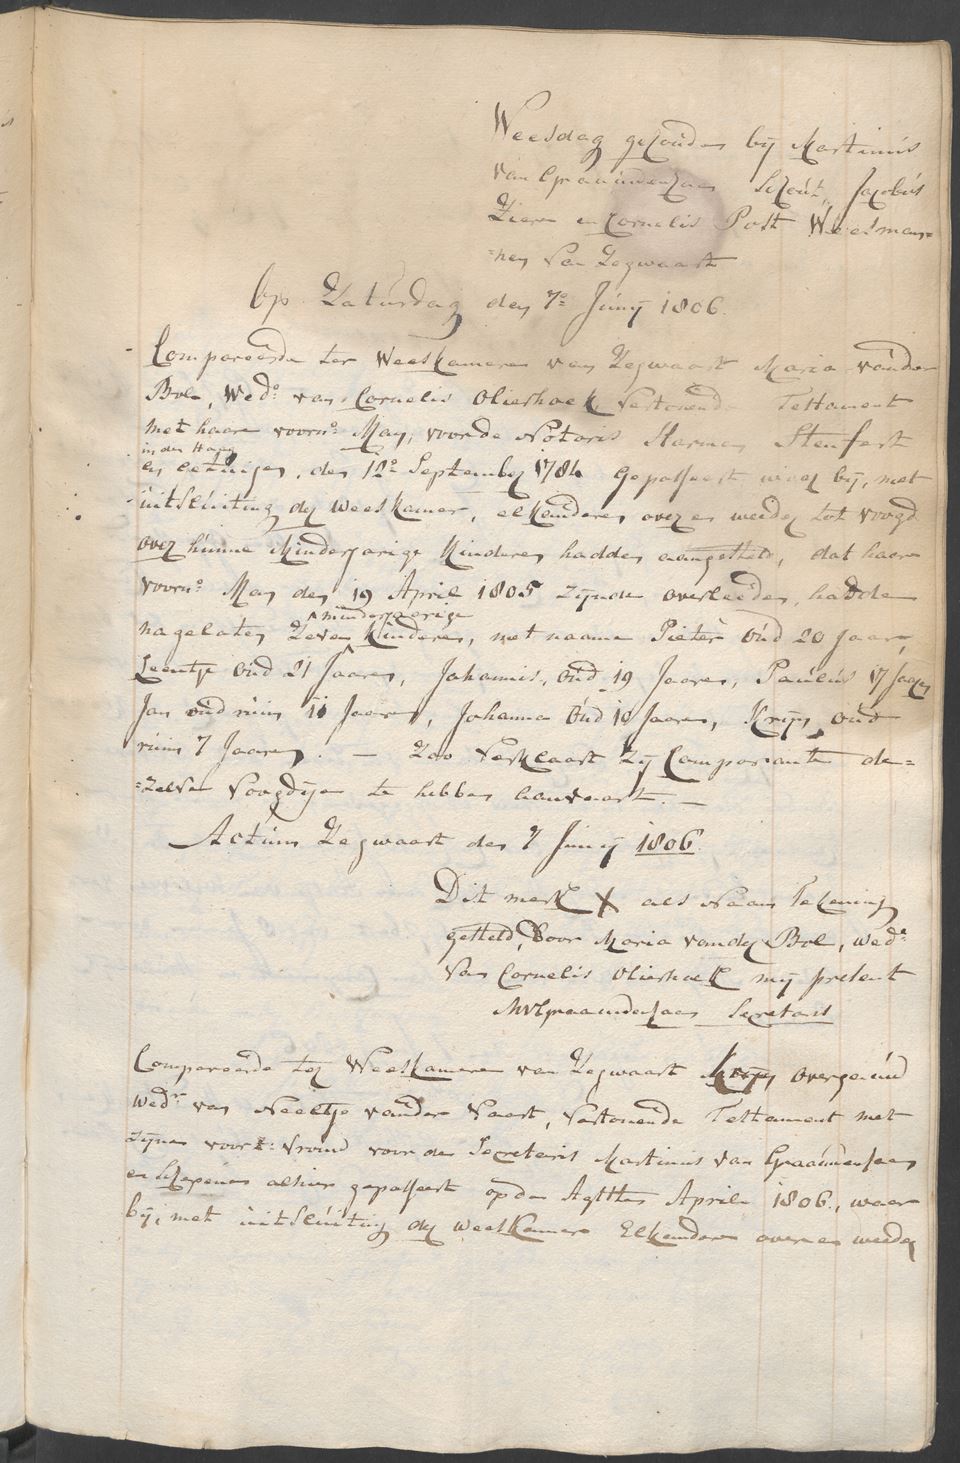 Weesdag gehouden bij Martinus
van Graauwenhaan Schout, Jacobus
Ziere en Cornelis Post Weesman=
=nen van Zegwaart
Op Zaturdag den 7e Junij 1806.
Compareerde ter Weeskamere van Zegwaart Maria vander
Bol, Wede. van Cornelis Olierhoek vertonende Testament
met haar voorn: Man, voor de Notaris Harman
in den Haag
en getuigen, den 12e September 1784 gepasseert waar bij, met
uitsluiting der Weeskamer, elkanderen over en weeder tot voogd
over hunne minderjarige kinderen hadden aangesteld, dat haar
voorn: Man den 19 April 1805 zijnde overleeden, hadde
minderjarige
nagelaten Zeven kinderen, met naame Pieter oud 20 Jaar,
Leentje oud 21 Jaaren, Johannis, oud 19 Jaaren, Paulus 17 Jaren
Jan oud ruim 11 Jaaren, Johanna oud 10 Jaaren, Krijn oud
ruim 7 Jaaren. — Zoo verklaart zij Comparante de=
=zelve Voogdije te hebben aanvaart. —
Actum Zegwaart den 7 Junij 1806.
Dit merk X als Naam Tekening
gesteld, door Maria vander Bol, wede.
van Cornelis Olierhoek mij present
Secretaris
Compareerde ter Weeskamere van Zegwaart Krijn
wedr. van Neeltje vander Vaart, vertonende Testament met
zijne voorn: vrouw voor den Secretaris Martinus van
en Schepenen alhier gepasseert op den Agtsten April 1806., waar
bij, met uitsluiting der weeskamer Elkander over en weeder